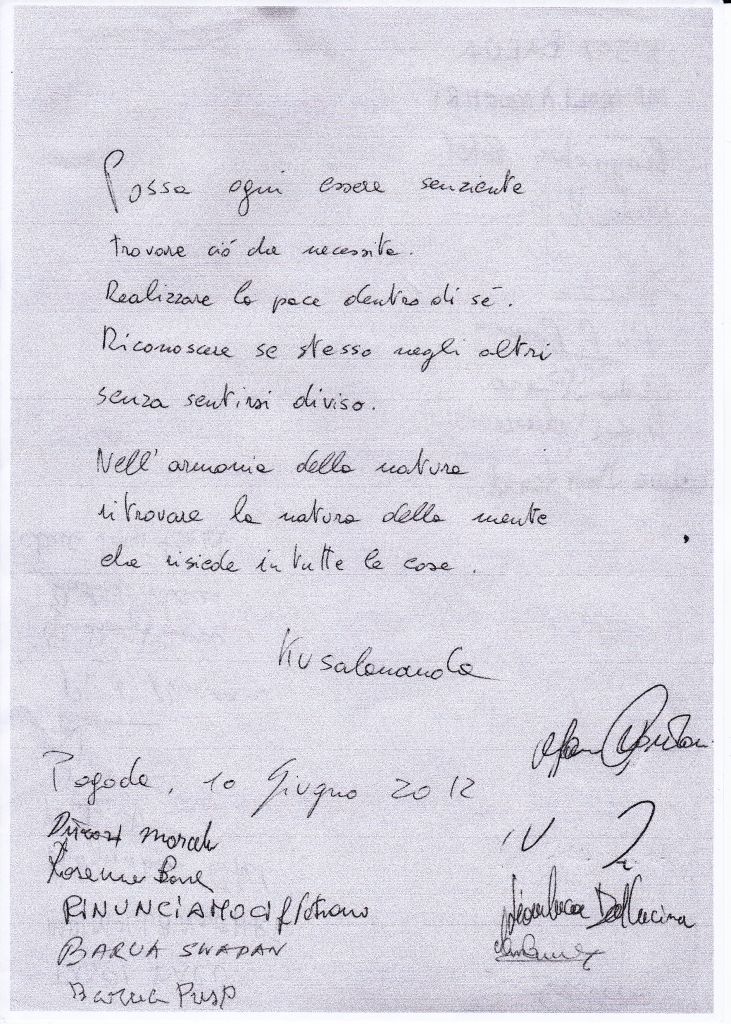 Possa ogni essere senziente
trovare ciò che necessita.
Realizzare la pace dentro di sé.
Riconoscere se stesso negli altri
senza sentirsi diviso.
Nell'armonia della natura
ritrovare la natura della mente
che risiede in tutte le cose.
Kusalananda
Pagoda, 10 Giugno 2012
RINUNCIAMOCI
Gianluca Dellucina
BARUA SWAPAN
Barua Pusp